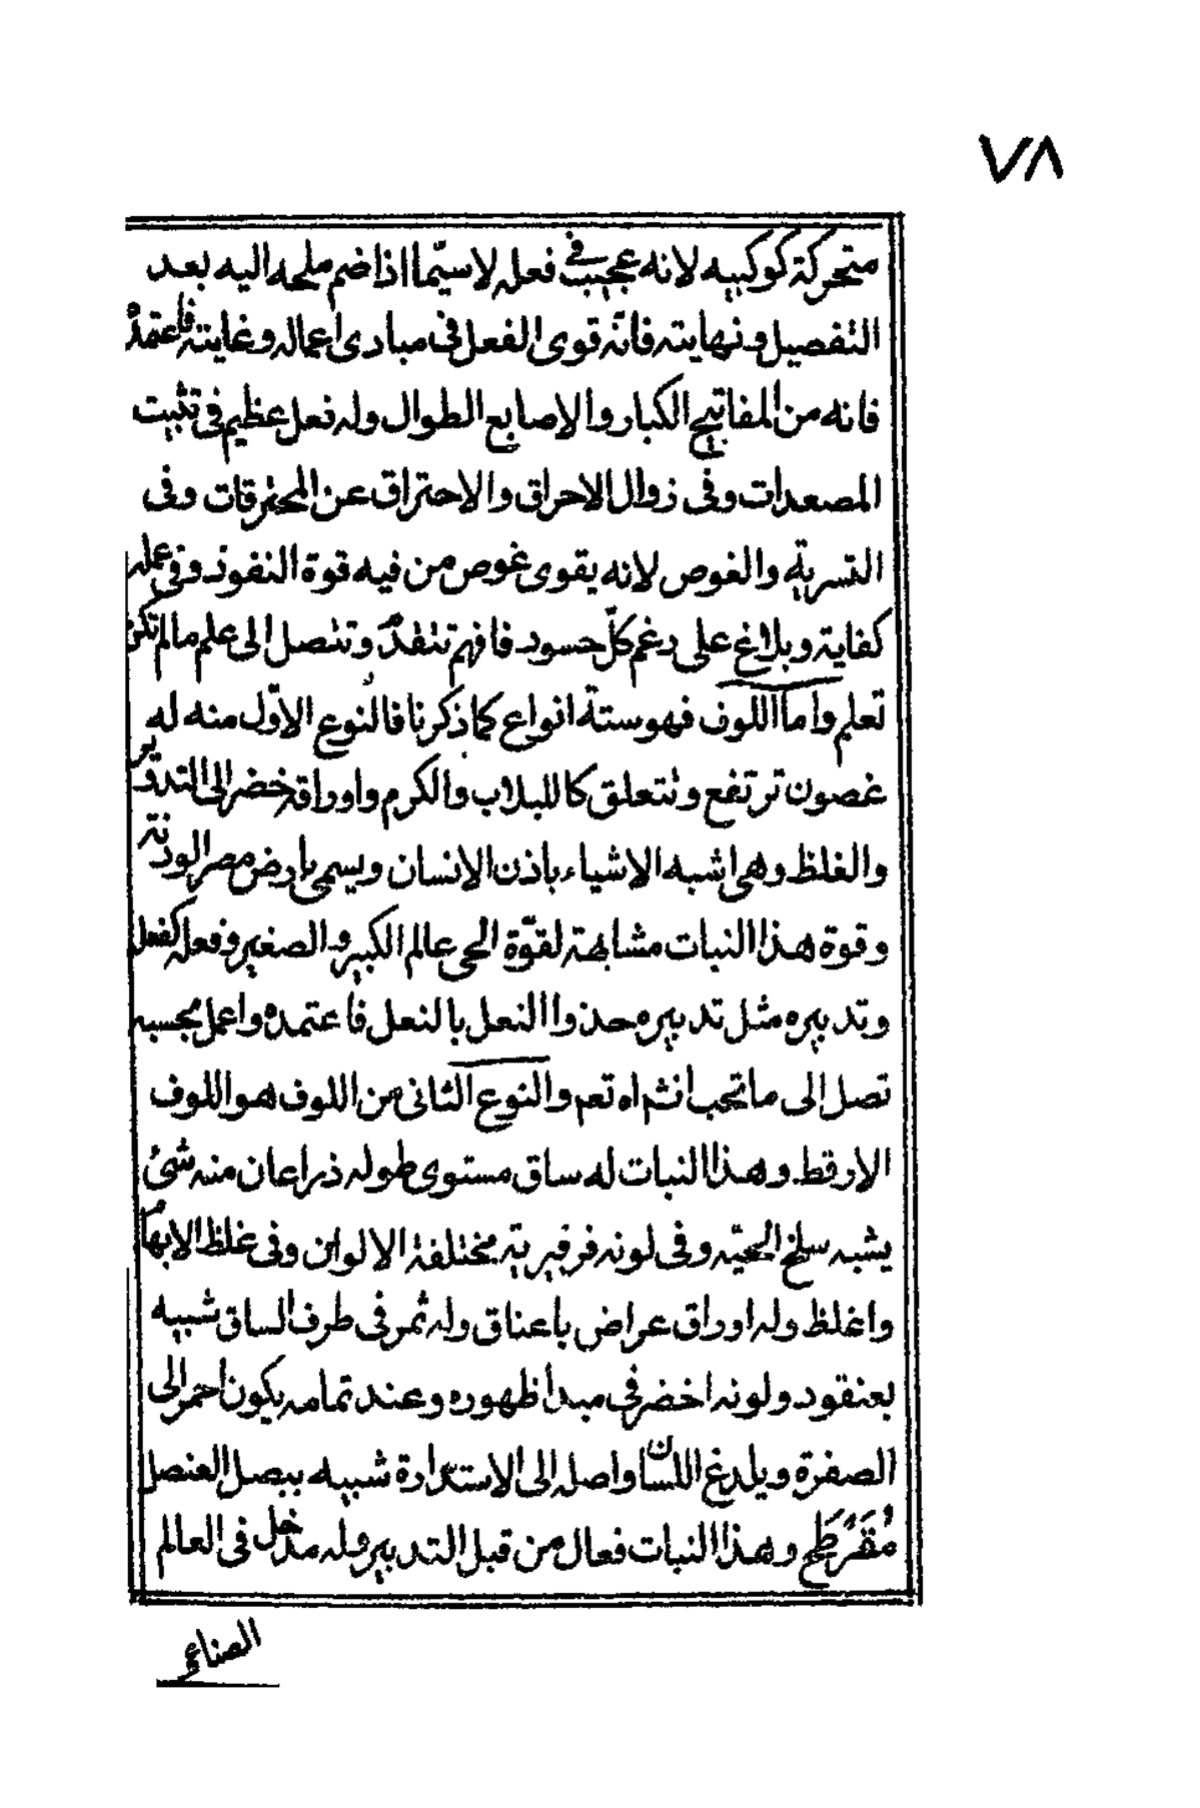 ٧٨
متحركة كوكبيه لانه عجيب فى فعله لا سيّما اذا ضم ملحه اليه بعد
التفصيل ونهايته فانّه قوى الفعل فى مبادى اعماله وغايته فاعتمدْ
فانه من المفاتيح الكبار والاصابع الطوال وله فعل عظيم فى تثبيت
المصعدات وفى زوال الاحراق والاحتراق عن المحترقات وفى
التسرية والغوص لانه يقوى غوص من فيه قوة النفوذ وفى عمله
كفاية وبلاغ على رغم كلّ حسود فافهم تنفذ وتتصل الى علم مالم تكن
تعلم واما اللوف فهو ستة انواع كما ذكرنا فالنوع الاوّل منه له
غصون ترتفع وتتعلق كاللبلاب والكرم واوراقه خضر الى التدوير
والغلظ وهى اشبه الاشياء باذن الانسان ويسمى بارض مصر الودنة
وقوة هذا النبات مشابهة لقوّة الحى عالم الكبير والصغير وفعله كفعل
وتدبيره مثل تدبيره حذوا النعل بالنعل فاعتمده واعمل بحسبه
تصل الى ما تحب انشاه تعم والنوع الثانى من اللوف هو اللوف
الارقط وهذا النبات له ساق مستوى طوله ذراعان منه شئ
يشبه سلخ الحيّه وفى لونه فرفيرية مختلفة الالوان وفى غلظ الابهام
واغلظ وله اوراق عراض باعناق وله ثمر فى طرف الساق شبيه
بعنقود ولونه اخضر فى مبدا ظهوره وعند تمامه يكون احمر الى
الصفرة ويلدغ اللسان واصله الى الاستدارة شبيه ببصل العنصل
مُقَرْطَح وهذا النبات فعال من قبل التدبير وله مدخل فى العالم
الصناعى